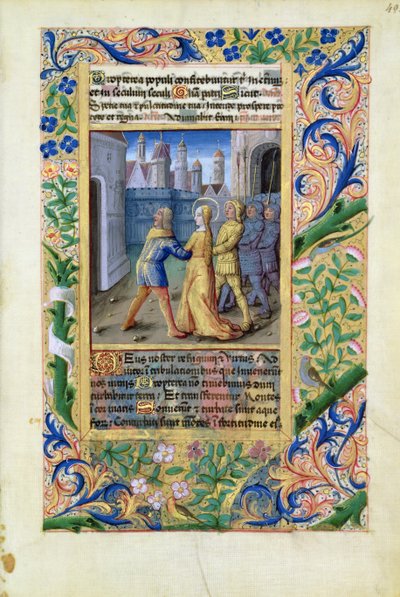 49
Propterea populi confitebuntur t in eternu:
et in seculum seculi Glia patri Sicut
Specie tua & pulcritudine tua: Intende prospere pro
cede et regna. Adiuvabit eam:
Deus noster refugium & virtus Ad
iutor i tribulationibus que invenerut
nos nimis Propterea no timebimus dum
turbabitur terra: Et transferentur Montes
i cor maris Sonuerut & turbate sunt aque
eor: Conturbati sunt motes i fortitudine ei.